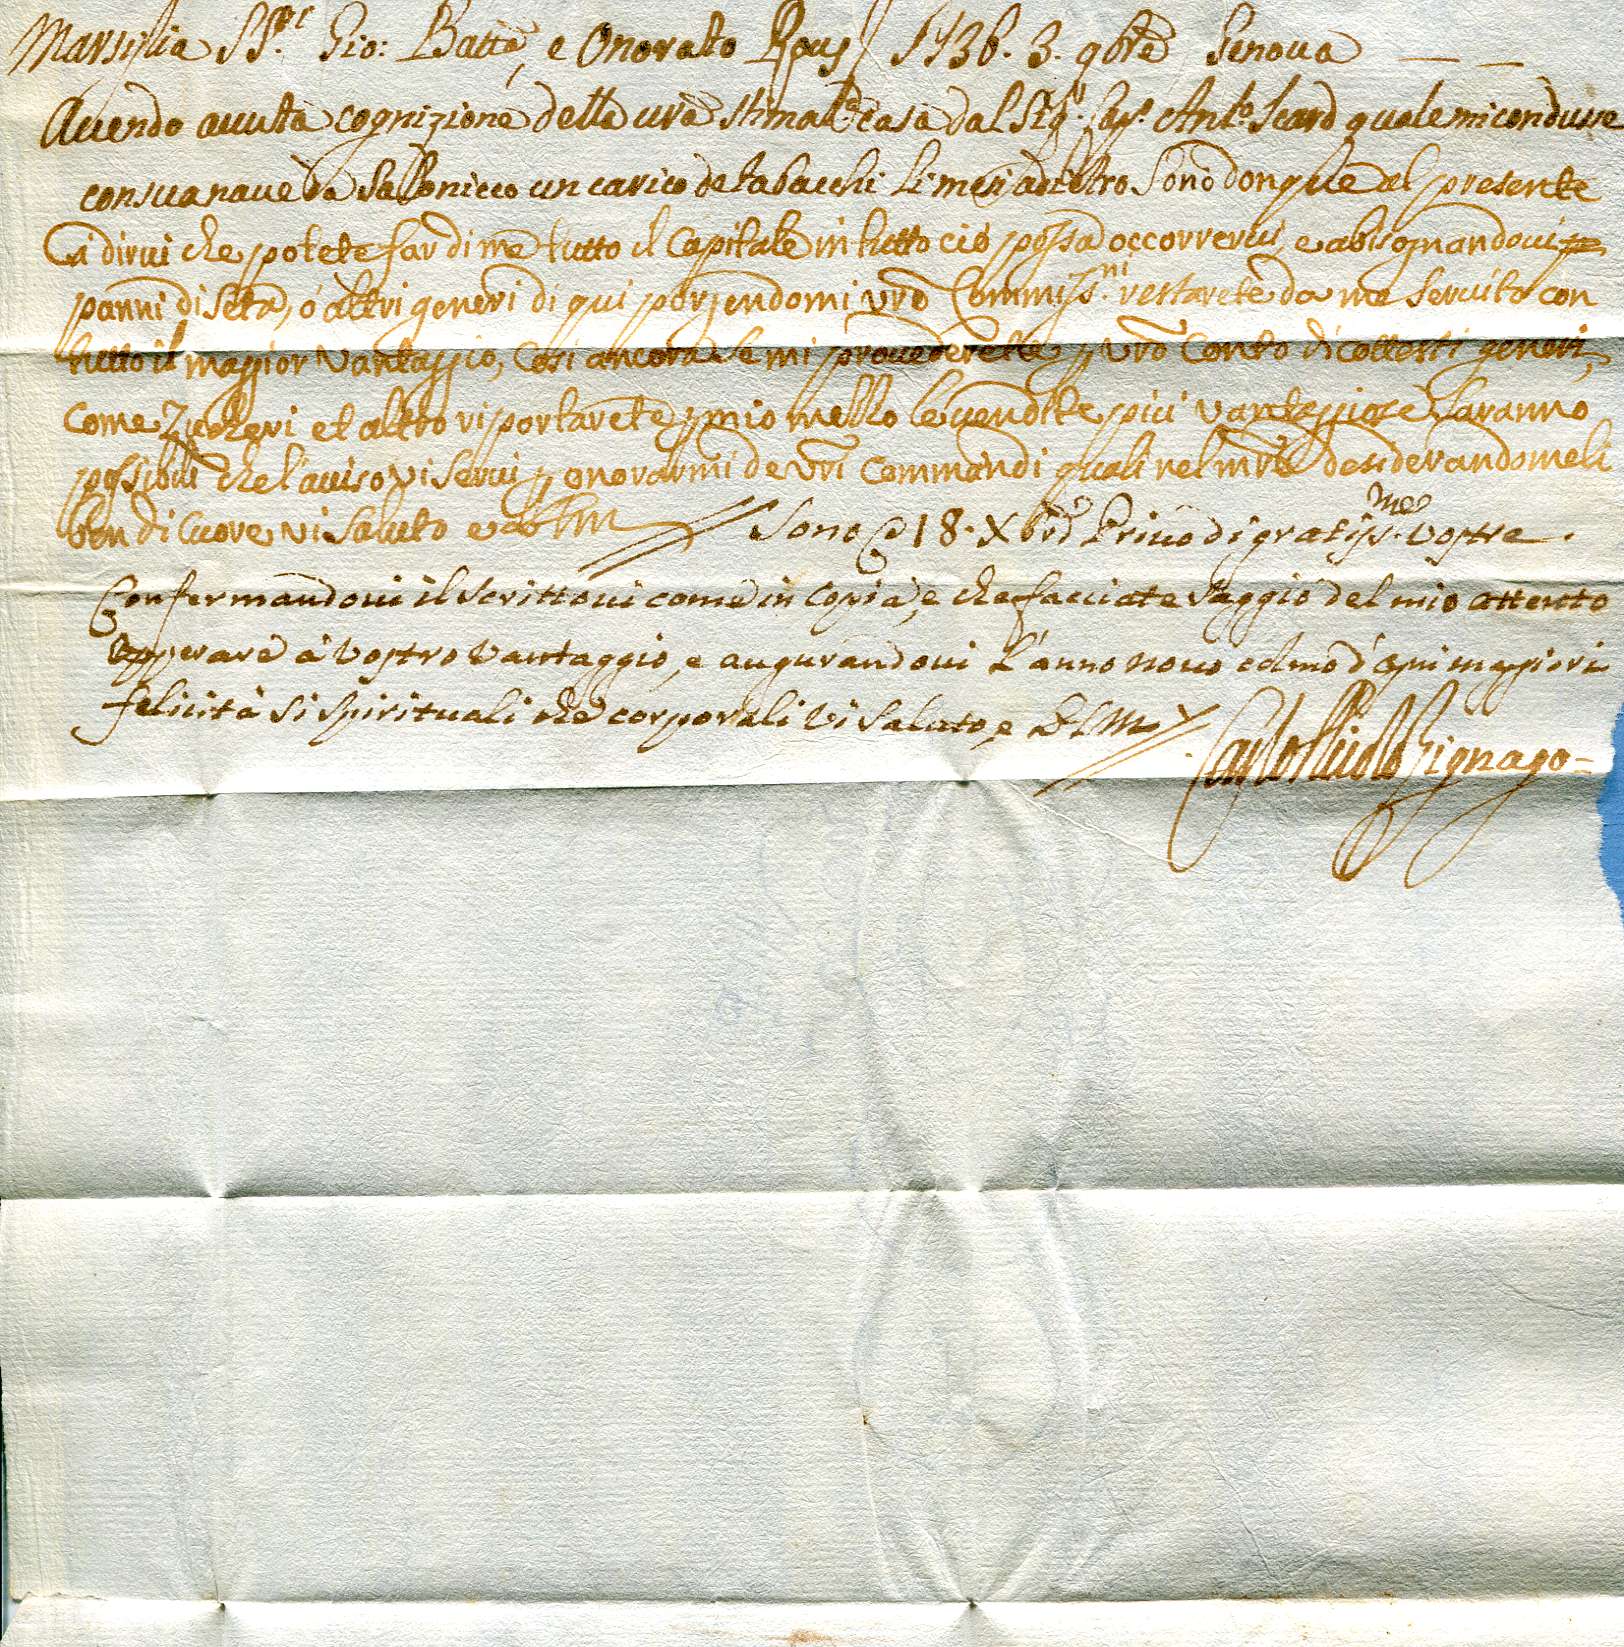 Marsiglia SS.ri Gio: Batta, e Onorato Roux / 1736. 3. 9bre Genova
Avendo avuta cognizione della vra stimat.a casa dal Sig.r Cap. Ant.o Icard quale mi condusse
con sua nave da Sallonicco un carico de tabacchi li mesi adietro sono donque al presente
a dirvi che potete far di me tutto il Capitale in tutto ciò possa occorrervi, e abisognandovi
panni di Seta, ò altri generi di qui porgendomi vro Commiss.ni restarete da me servito con
tutto il maggior vantaggio, Cosi ancora se mi provederete p vro Conto di cottesti generi,
come Zucheri et altro riportarete p mio mezzo le vendite più vantaggiose saranno
possibili che l'aviso vi servi p onorarmi de vri Commandi quali nel mre desiderandomeli
ben di Cuore vi saluto e
Sono a 18. Xbre Privo di gratiss.me vostre.
Confermandovi il scrittovi come in Copia, e che facciate saggio del mio attento
opperare à vostro vantaggio, e augurandovi l'anno novo colmo d'ogni maggiori
felicità si spirituali che corporali vi saluto, e BLM
Carlo Zignago